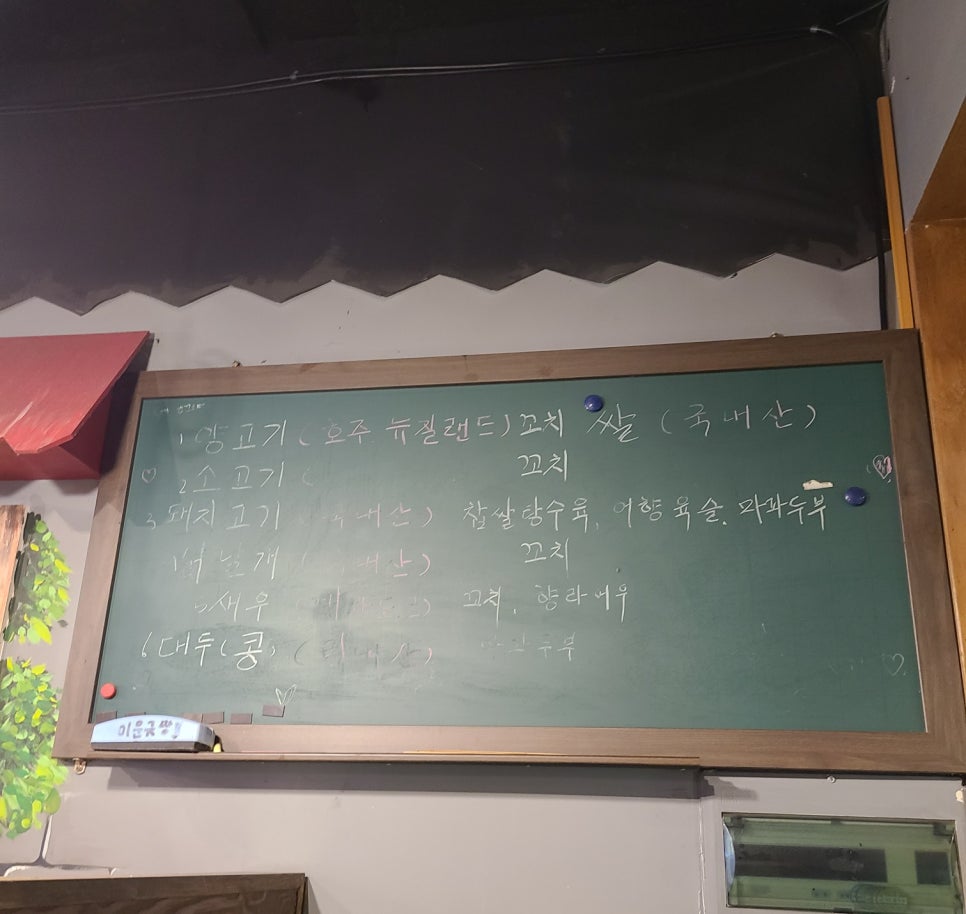 1 양고기 (호주 뉴질랜드) 꼬치 쌀 (국내산)
2 소고기 ( 꼬치
3 돼지고기 (국내산) 찹쌀탕수육, 어향육슬, 마파두부
날개 ( 내산) 꼬치
5 새우 꼬치, 향라새우
6 대두(콩) ( 내산) 두부